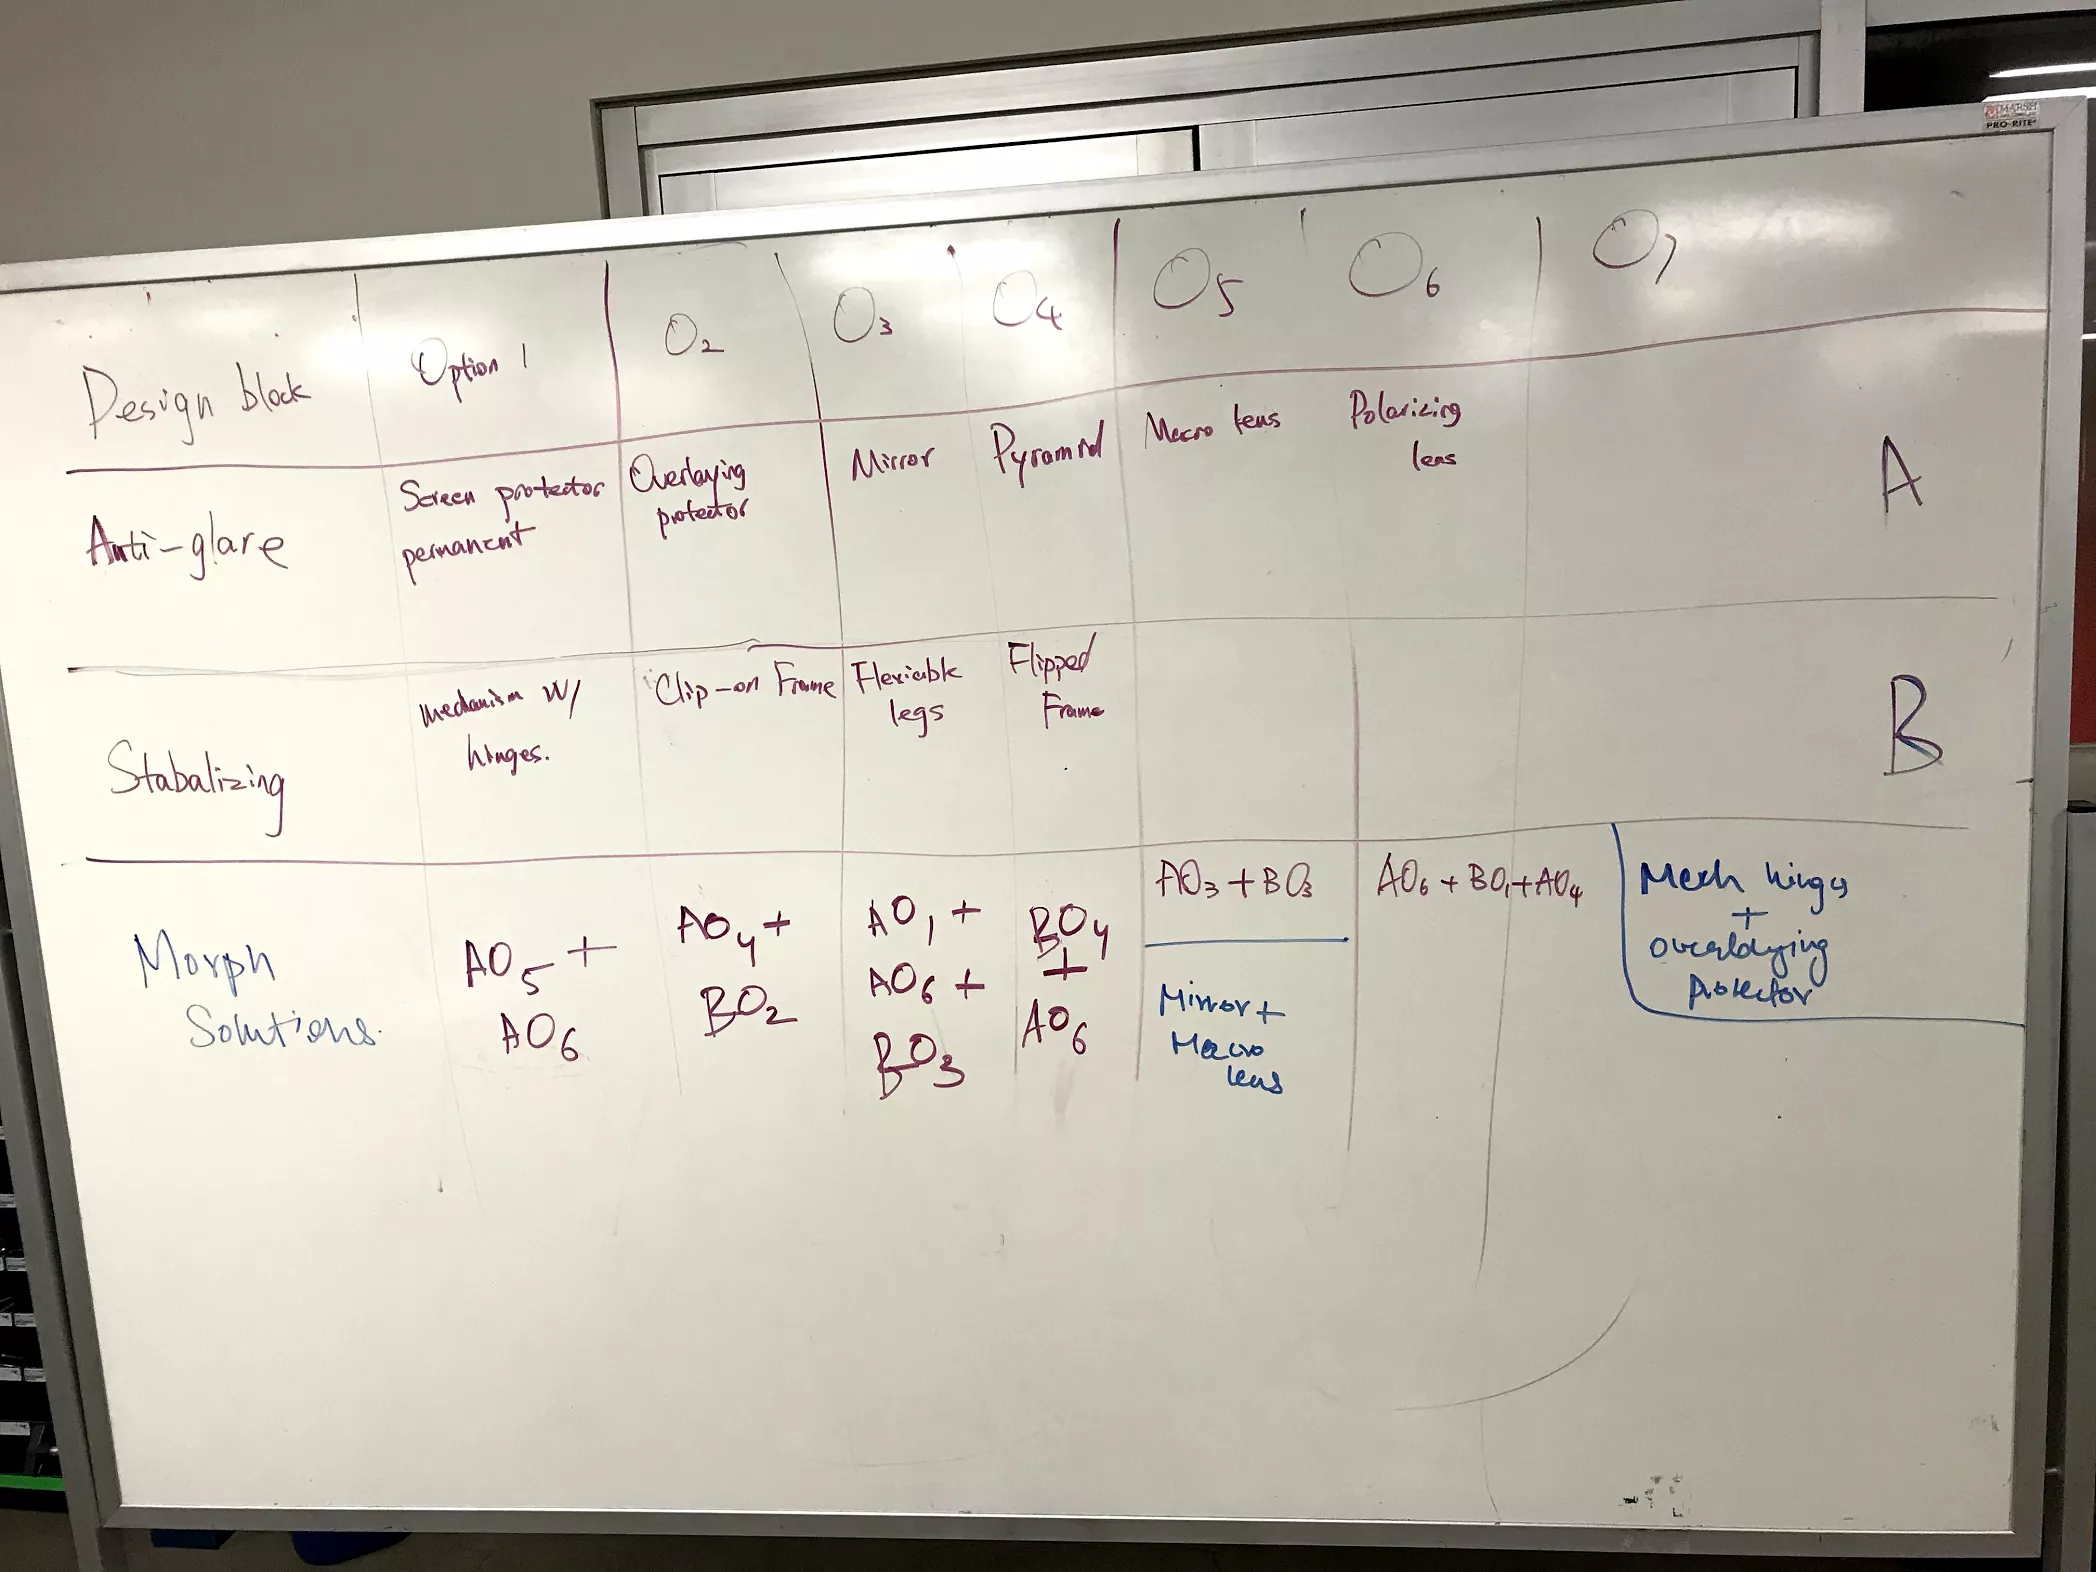 MARSH
PRO-RITE
Design block
Option 1
O2
O3
O4
O5
O6
O7
Anti-glare
Screen protector
permanent
Overlaying
protector
Mirror
Pyramid
Macro lens
Polarizing
lens
A
Stabalizing
Mechanism W/
hinges.
Clip-on Frame
Flexicible
legs
Flipped
Frame
B
Morph
Solutions.
AO5 +
AO6
AO4 +
BO2
AO1 +
AO6 +
BO3
BO4
+
AO6
AO3 + BO3
Mirror +
Macro
lens
AO6 + BO1 + AO4
Mech hinges
+
overlaying
protector